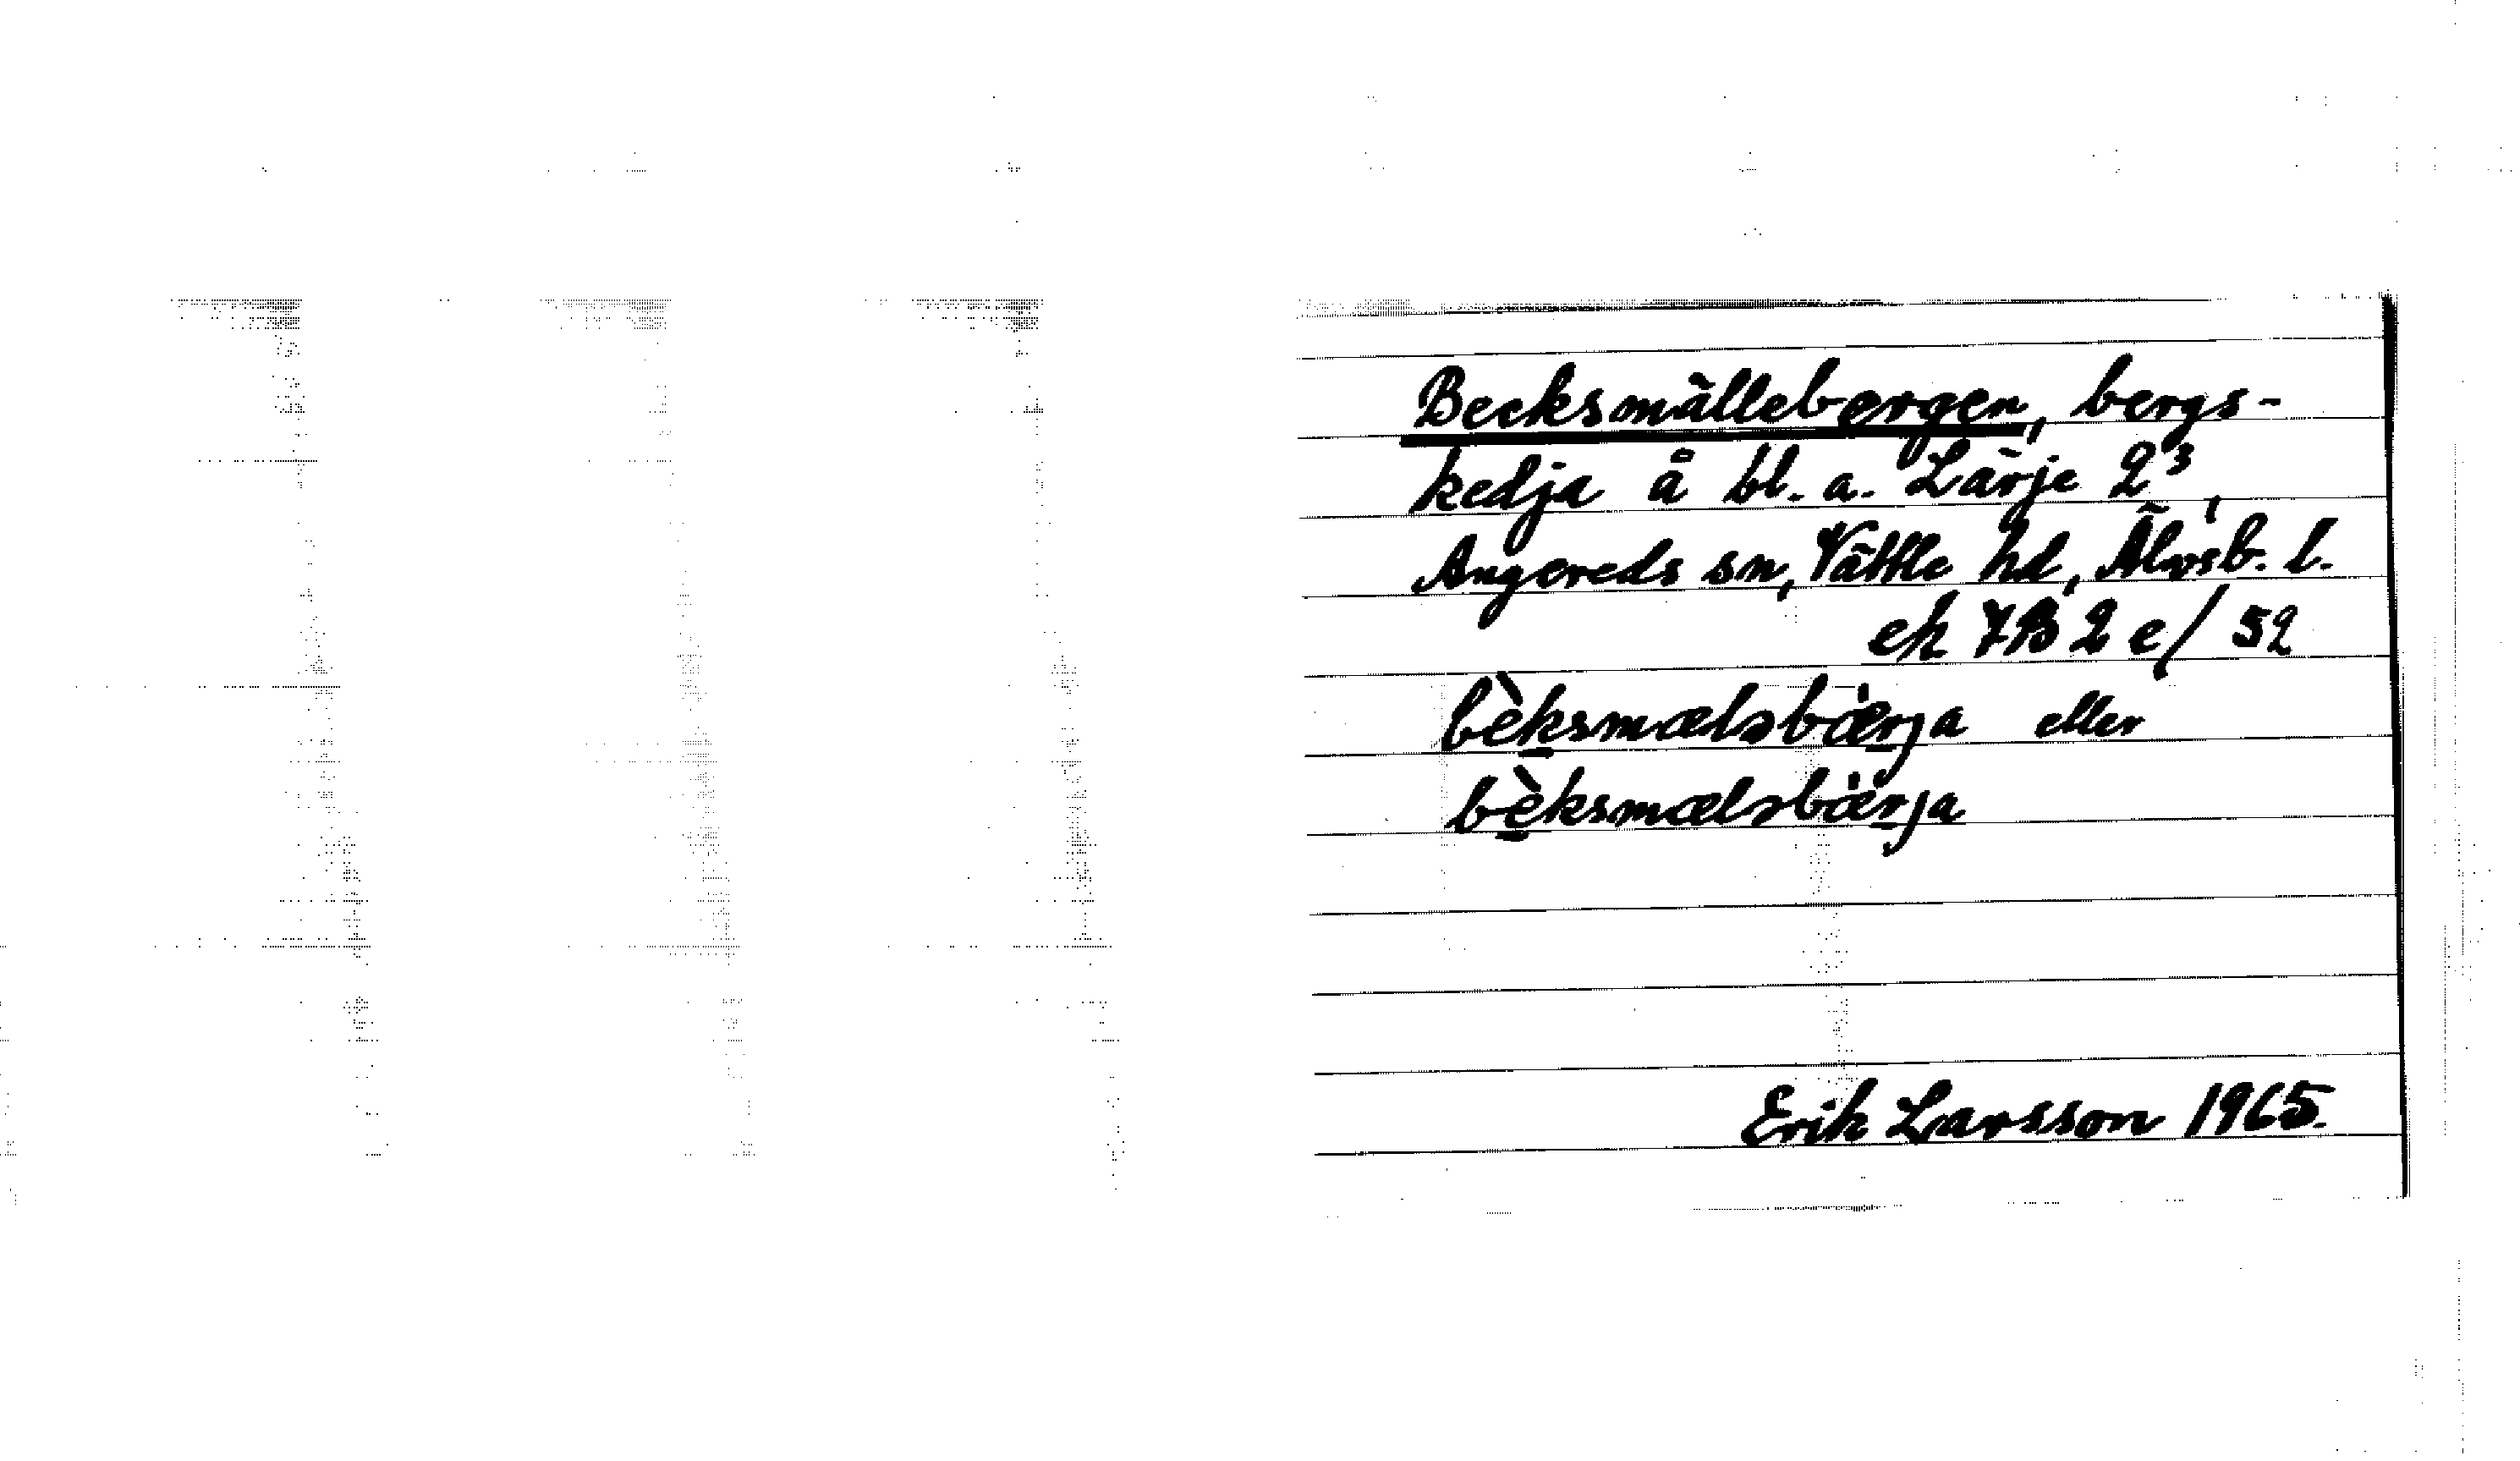 Becksmällebergen, bergs-
kedja å bl. a. Lärje 2³,
Angereds sn, Vättle hd, Älvsb. l.
ek 7B 2 e/ 52
bèksmælsbærja eller
bèksmælsbærja
Erik Larsson 1965.